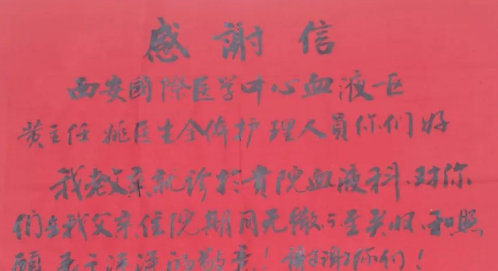 感謝信
西安國際医学中心血液一区
黄主任 姚医生全体护理人員你们好
我老父亲就诊于貴院血液科、对你
们在我父亲住院期间无微不至关心和照
顾表示深深的敬意！謝謝你们！